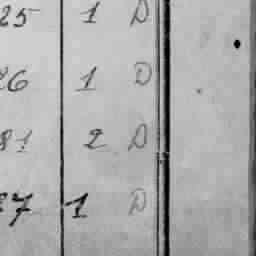 25 1 D
26 1 D
81 2 D
27 1 D